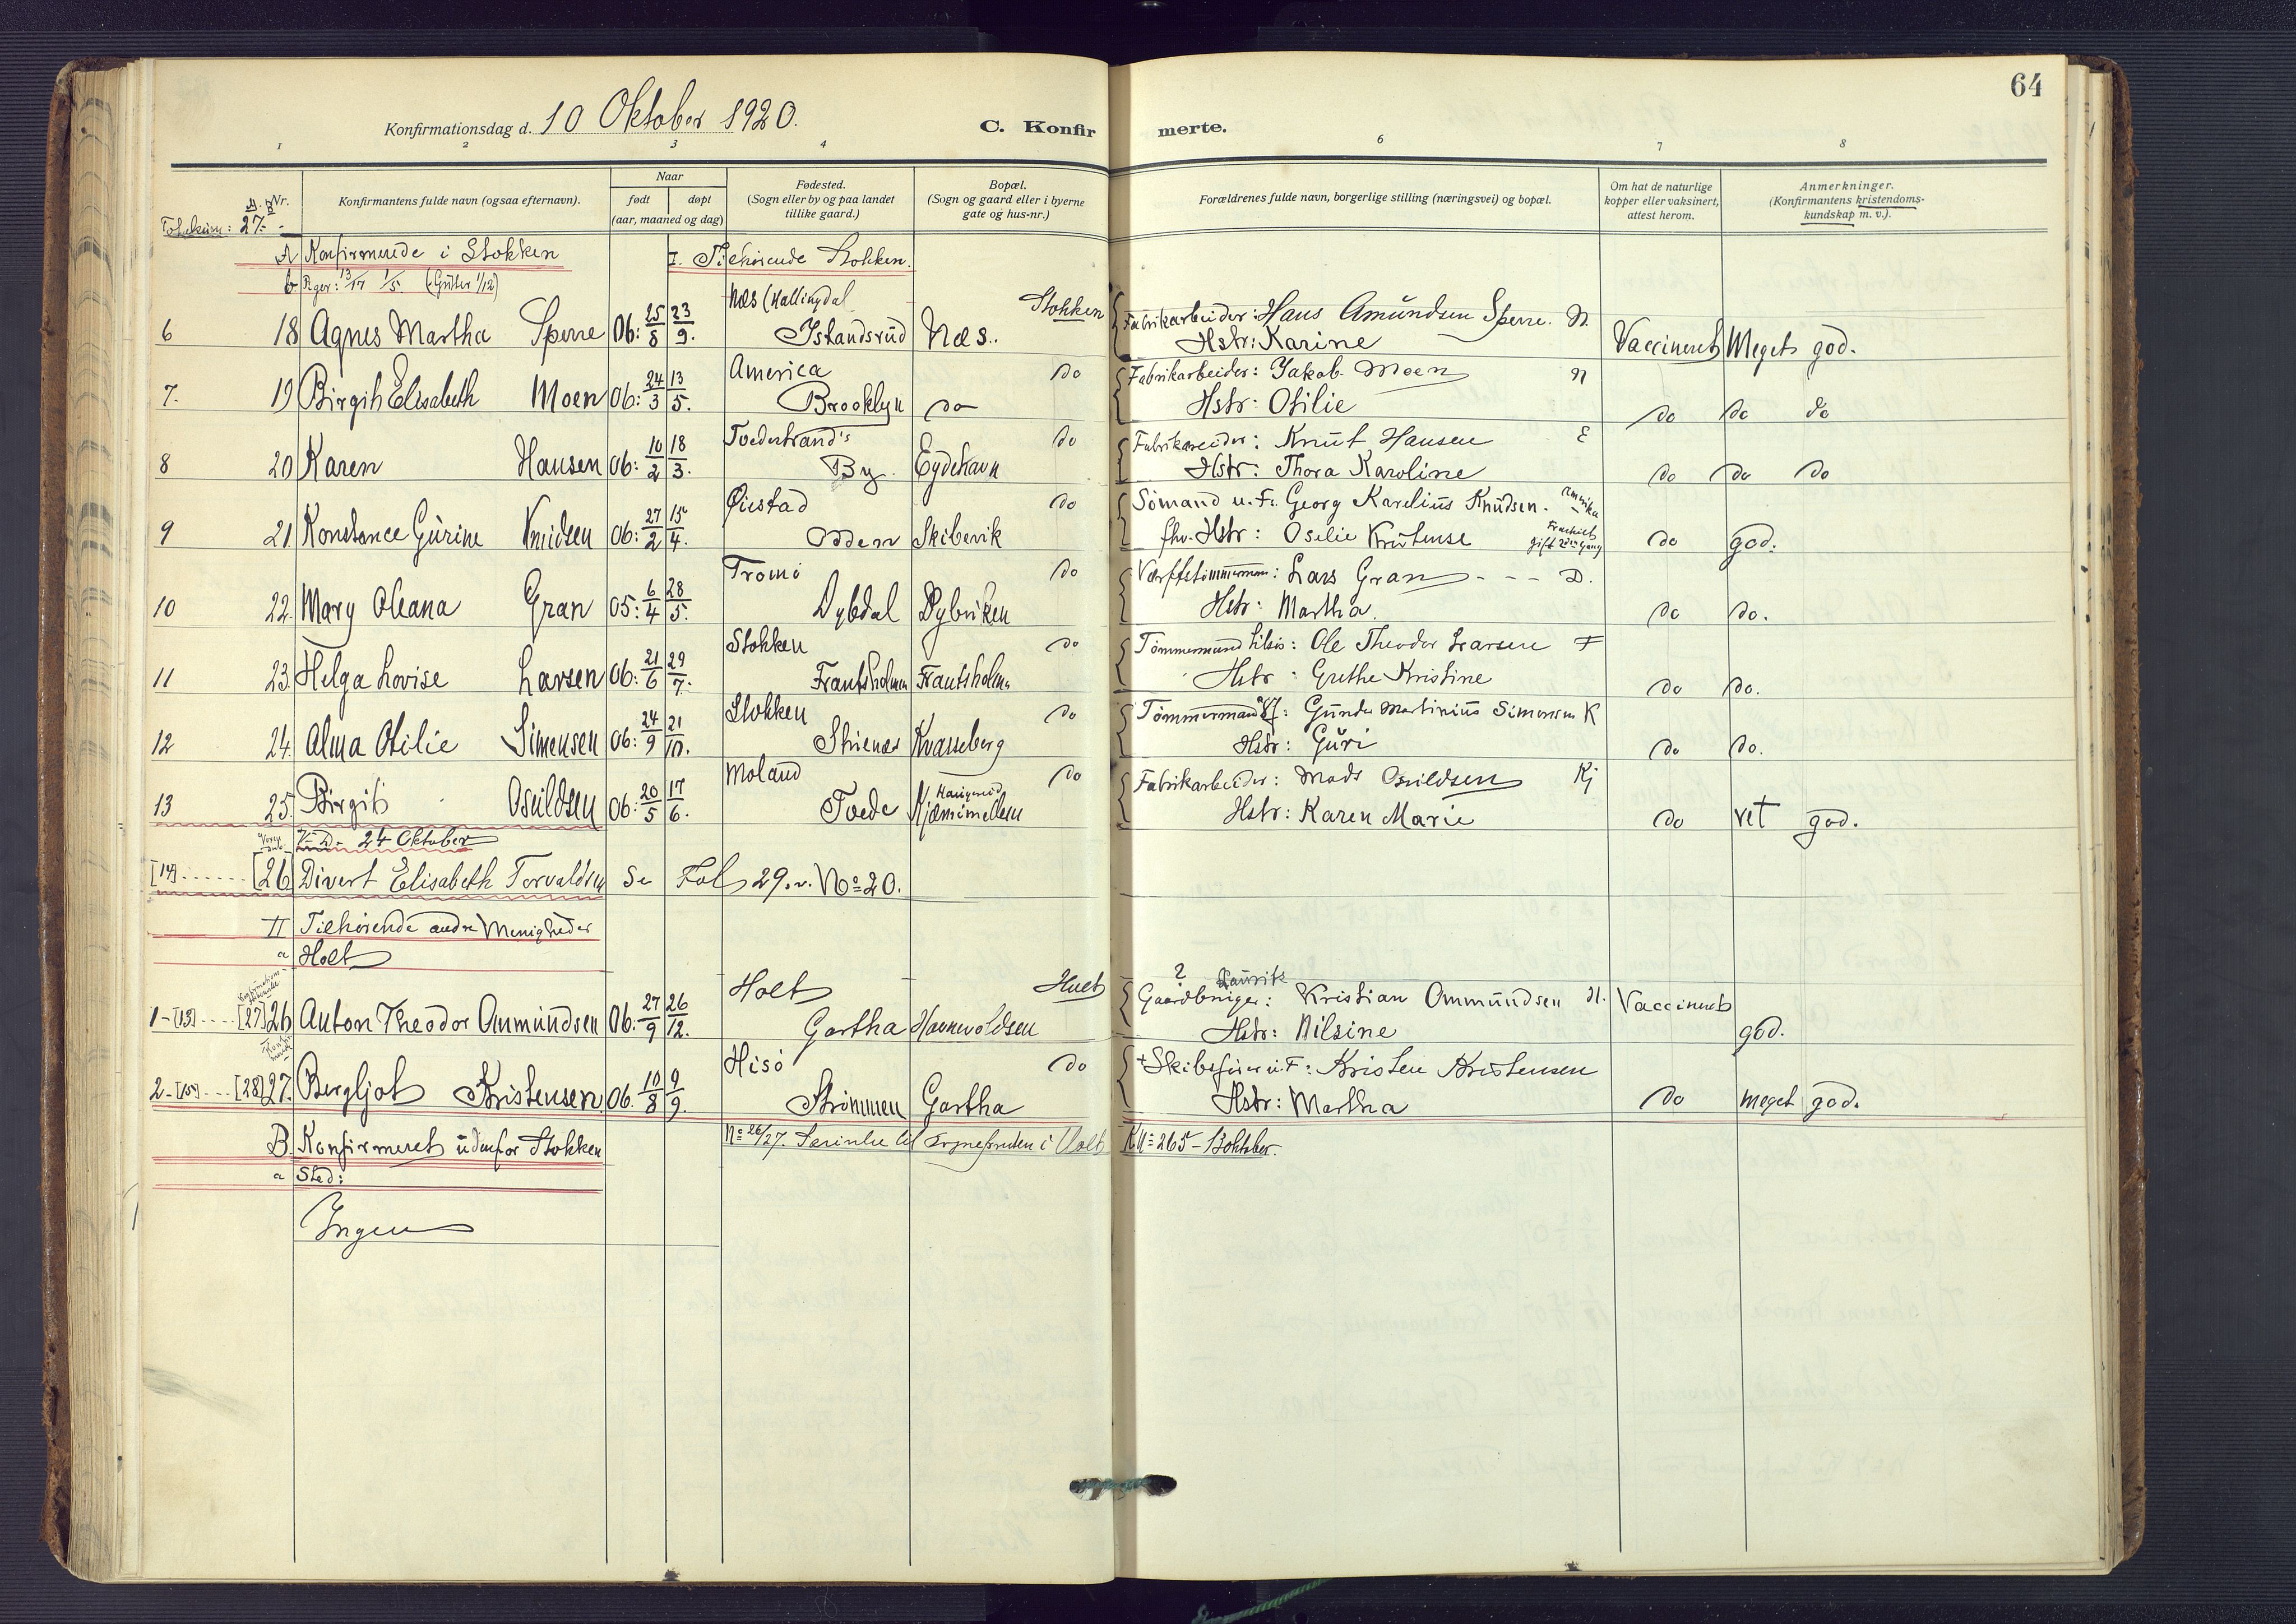 64
Konfirmationsdag d. 10 Oktober 1920.
C. Konfirmerte.
1 2 3 4 6 7 8
Nr.
27.
Konfirmantens fulde navn (ogsaa efternavn).
Naar
født døpt
(aar, maaned og dag)
Fødested.
(Sogn eller by og paa landet
tillike gaard.)
Bopæl.
(Sogn og gaard eller i byerne
gate og hus-nr.)
Forældrenes fulde navn, borgerlige stilling (næringsvei) og bopæl.
Om hat de naturlige
kopper eller vaksinert,
attest herom.
Anmerkninger.
(Konfirmantens kristendoms-
kundskap m. v.).
A Konfirmerede i Stokken I. Tilhørende Stokken.
b. Piger: 13/17 1/5. (Gutter 1/12)
Næs (Hallingdal Stokken Fabrikarbeider: Hans Amundsen Sperre. N.
6 18 Agnes Martha Sperre 06: 25/8 23/9. Istandsrud Næs. Hstr: Karine Vaccineret Meget god.
America do Fabrikarbeider: Jakob Moen N
7. 19 Birgit Elisabeth Moen 06: 24/3 13/5. Brooklyn do Hstr: Otilie do do do
Tvedestrand's do Fabrikareider: Knut Hansen E
8 20 Karen Hansen 06: 10/2 18/3. By. Eydehavn Hstr: Thora Karoline do do do
Øiestad do Sömand u. F: Georg Karelius Knudsen. Amerika
9 21. Konstance Gurine Knudsen 06: 27/2 15/4. Odden Skibevik fhv. Hstr: Oselie Knutense Fraskilt gift 2den gang do god.
Tromö do Værftstömmermann: Lars Gran D.
10 22. Mary Oleana Gran 05: 6/4 28/5. Dybdal Dybviken Hstr: Martha. do do.
Stokken do Tömmermand tilsös: Ole Theodor Larsen F
11 23. Helga Lovise Larsen 06: 21/6 29/7. Frantsholmen Frantsholm. Hstr: Grethe Kristine do do.
Stokken do Tömmermand: Gunder Martinius Simonsen K
12 24. Alma Otilie Simensen 06: 24/9 21/10. Skienes Kvasseberg Hstr: Guri do do.
Moland do Fabrikarbeider: Mads Osuldsen Kj
13 25. Birgit Osuldsen 06: 20/5 17/6. Tvede Hstr: Karen Marie do ret god.
24 Oktober
[14] [26 Divert Elisabeth Torvaldsen Se Fol 29. v. No 20.
II Tilhörende andre Menigheder
a Holt
Holt Holt ? Gaardbruger: Laurits Kristian Ommundsen H. Vaccineret
1-[13] [27] 26 Anton Theodor Ommundsen 06: 27/9 26/12. Gartha Havnevoldsen Hstr: Nilsine god.
Hisö do + Skibsförer u. F: Kristen Kristensen
2-[15] [28] 27. Bergljot Kristensen 06. 10/8 9/9. Strömmen Gartha Hstr: Martha do meget god.
B. Konfirmeret udenfor Stokken No 26/27. til Sognepresten i Holt KN= 265 - 13 oktober.
a Sted:
Ingen